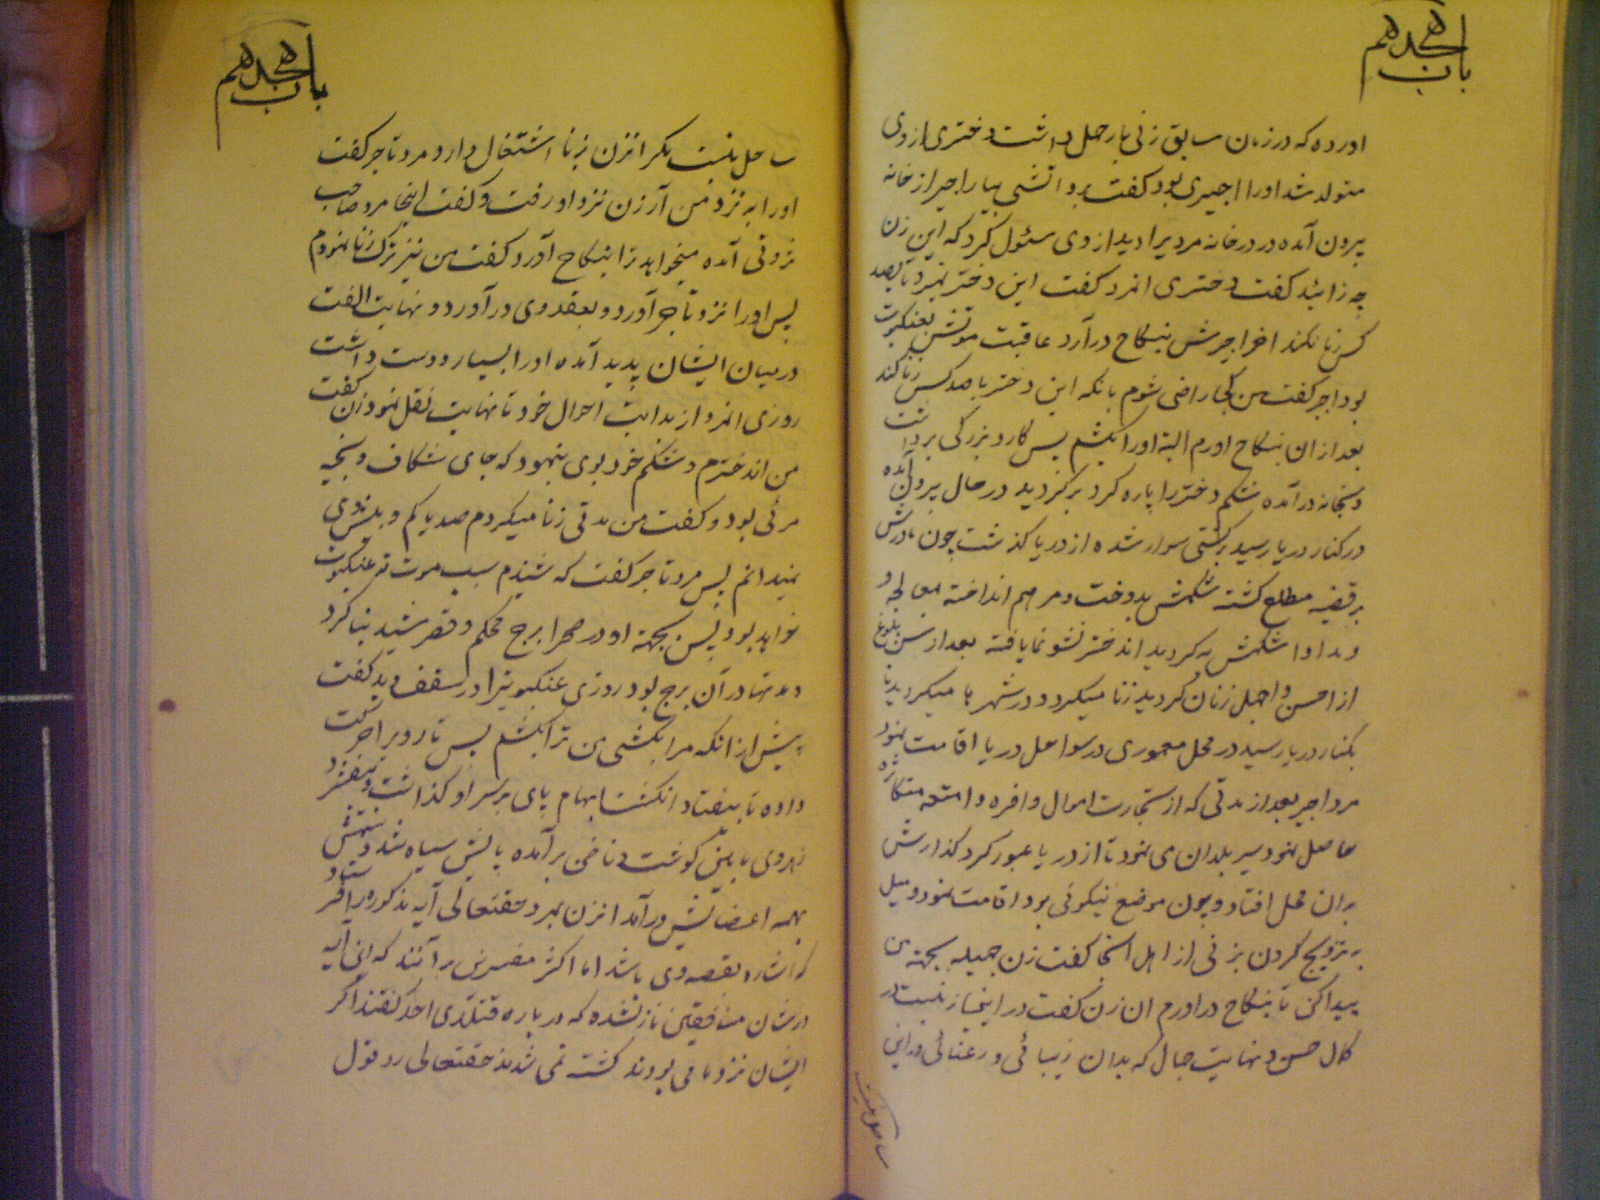 باب هجدهم
اورده که در زمان سابق زنی بار حمل داشت دختری از وی
متولد شد او را اجیری بود گفت برو آتشی بیار اجیر از خانه
بیرون آمده در در خانه مردیرا دید از وی سئول کرد که این زن
چه زائید گفت دختری انمرد گفت این دختر نمیرد تا بصد
کس زنا نکند اخر اجیرش بنکاح درآرد عاقبت موتش بعنکبوت
بود اجیر گفت من کجا راضی شوم بانکه این دختر با صد کس زنا کند
بعد از ان بنکاح اورم البته او را بکشم پس کارد بزرگی برداشت
و بخانه درآمده شکم دختر را پاره کرد برگردید در حال بیرون آمده
در کنار دریا رسید بر کشتی سوار شده از دریا گذشت چون مادرش
بر قضیه مطلع گشته شکمش بدوخت و مرهم انداخته معالجه و
مداوا شکمش به گردید اندختر نشو نما یافته بعد از سن بلوغ
از احسن و اجمل زنان گردید زنا میکرد و در شهر ها میگردید تا
بکنار دریا رسید در محل معموری در سواحل دریا اقامت نمود
مرد اجیر بعد از مدتی که از تجارت اموال وافره و امتعه متکاثره
حاصل نمود سیر بلدان می نمود تا از دریا عبور کرد گذارش
بدان محل افتاد و چون موضع نیکوئی بود اقامت نمود و میل
به تزویج کردن بزنی از اهل انجا گفت زن جمیله بجهته من
پیدا کن تا بنکاح در اورم ان زن گفت در اینجا زنیست در
کمال حسن و نهایت جمال که بدان زیبائی و رعنائی در این
ساحل نیست
باب هجدهم
ساحل نیست مگر انزن بزنا اشتغال دارد مرد تاجر گفت
او را به نزد من آر زن نزد او رفت و گفت اینجا مرد صاحب
ثروتی آمده میخواهد ترا بنکاح آورد گفت من نیز ترک زنا نمودم
پس او را نزد تاجر آورد و بعقد وی درآورد و نهایت الفت
در میان ایشان پدید آمده او را بسیار دوست داشت
روزی انمرد از بدایت احوال خود تا نهایت نقل نمود زن گفت
من اندخترم و شکم خود بوی بنمود که جای شکاف و بخیه
مرئی بود و گفت من مدتی زنا میکردم صد یا کم و بیش
نمیدانم پس مرد تاجر گفت که شنیدم سبب موت تو عنکبوت
خواهد بود پس بجهته او در صحرا برج محکم و قصر مشید بنا کرد
و مدتها در آن برج بود روزی عنکبوتیرا در سقف دید گفت
پیش از انکه مرا بکشی من ترا بکشم پس تار ویرا حرکت
داده تا بیفتاد انگشت ابهام پای بر سر او گذاشت و بیفشرد
زهر وی ما بین گوشت و ناخن برآمده پایش سیاه شد
بهمه اعضایش درآمد انزن بمرد حقتعالی آیه مذکوره را
که اشاره بقصه وی باشد اما اکثر مفسرین برآنند که این آیه
در شان منافقین نازل شده که در باره قتلای احد گفتند اگر
ایشان نزد ما می بودند کشته نمی شدند حقتعالی رد قول